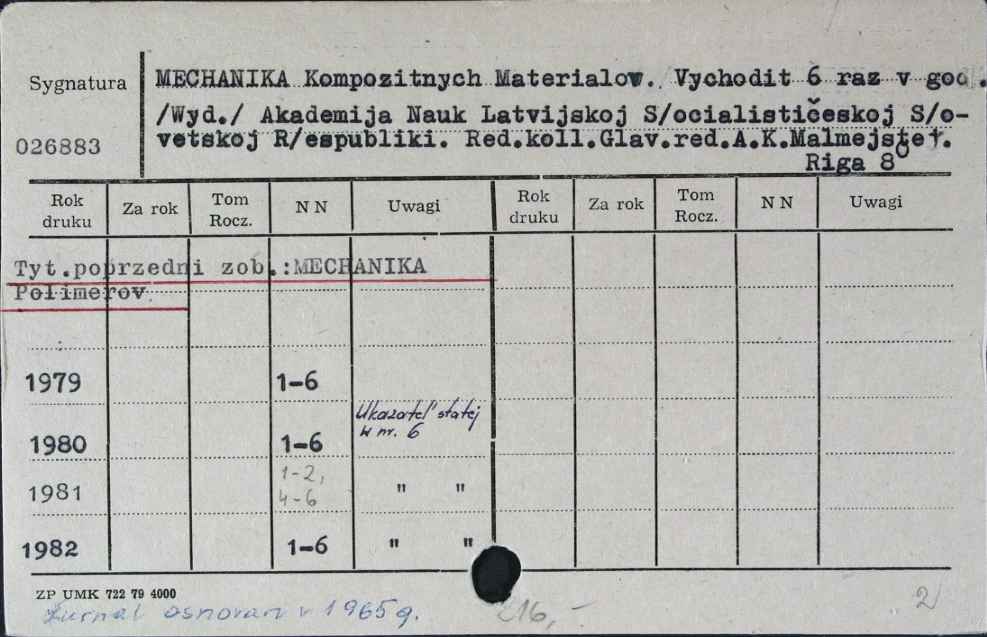 MECHANIKA Kompozitnych Materialov. Vychodit 6 raz v god.
Sygnatura
/Wyd./ Akademija Nauk Latvijskoj S/ocialističeskoj S/o-
026883
vetskoj R/espubliki. Red.koll.Glav.red.A.K.Malmejster.
Riga 8°
Rok druku Za rok Tom Rocz. N N Uwagi Rok druku Za rok Tom Rocz. N N Uwagi
Tyt.poprzedni zob.:MECHANIKA
Polimerov
1979 1-6
1980 1-6 Ukazatel' statej w nr. 6
1981 1-2, 4-6 " "
1982 1-6 " "
ZP UMK 722 79 4000
Žurnal osnovan v 1965 g. 216,-
2)